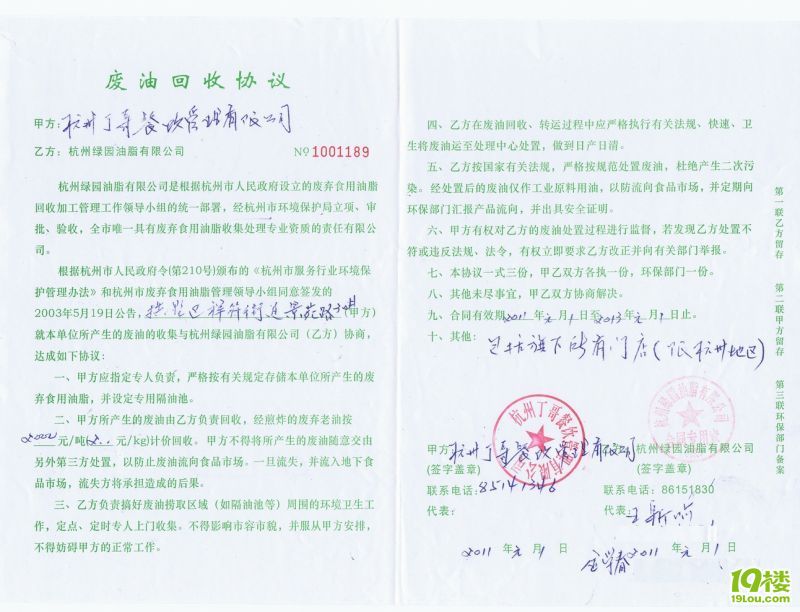 废油回收协议
甲方：杭州丁哥餐饮管理有限公司
乙方：杭州绿园油脂有限公司 №1001189
杭州绿园油脂有限公司是根据杭州市人民政府设立的废弃食用油脂
回收加工管理工作领导小组的统一部署，经杭州市环境保护局立项、审
批、验收，全市唯一具有废弃食用油脂收集处理专业资质的责任有限公
司。
根据杭州市人民政府令(第210号)颁布的《杭州市服务行业环境保
护管理办法》和杭州市废弃食用油脂管理领导小组同意签发的
2003年5月19日公告，拱墅区祥符街道景苑路 (甲方)
就本单位所产生的废油的收集与杭州绿园油脂有限公司（乙方）协商，
达成如下协议：
一、甲方应指定专人负责，严格按有关规定存储本单位所产生的废
弃食用油脂，并设定专用隔油池。
二、甲方所产生的废油由乙方负责回收，经煎炸的废弃老油按
元/吨( 元/kg)计价回收。甲方不得将所产生的废油随意交由
另外第三方处置，以防止废油流向食品市场。一旦流失，并流入地下食
品市场，流失方将承担造成的后果。
三、乙方负责搞好废油捞取区域（如隔油池等）周围的环境卫生工
作，定点、定时专人上门收集。不得影响市容市貌，并服从甲方安排，
不得妨碍甲方的正常工作。
四、乙方在废油回收、转运过程中应严格执行有关法规、快速、卫
生将废油运至处理中心处置，做到日产日清。
五、乙方按国家有关法规，严格按规范处置废油，杜绝产生二次污
染。经处置后的废油仅作工业原料用油，以防流向食品市场，并定期向
环保部门汇报产品流向，并出具安全证明。
六、甲方有权对乙方的废油处置过程进行监督，若发现乙方处置不
符或违反法规、法令，有权立即要求乙方改正并向有关部门举报。
七、本协议一式三份，甲乙双方各执一份，环保部门一份。
八、其他未尽事宜，甲乙双方协商解决。
九、合同有效期2011年元月1日至2013年元月1日止。
十、其他：包括旗下所有门店（限杭州地区）
甲方：杭州丁哥餐饮管理有限公司 杭州绿园油脂有限公司
(签字盖章) (签字盖章)
联系电话：85141346 联系电话：86151830
代表： 代表：
2011年元月1日 2011年元月1日
杭州丁哥餐饮管理有限公司
杭州绿园油脂有限公司
合同专用章
第一联乙方留存
第二联甲方留存
第三联环保部门备案
19楼
19lou.com